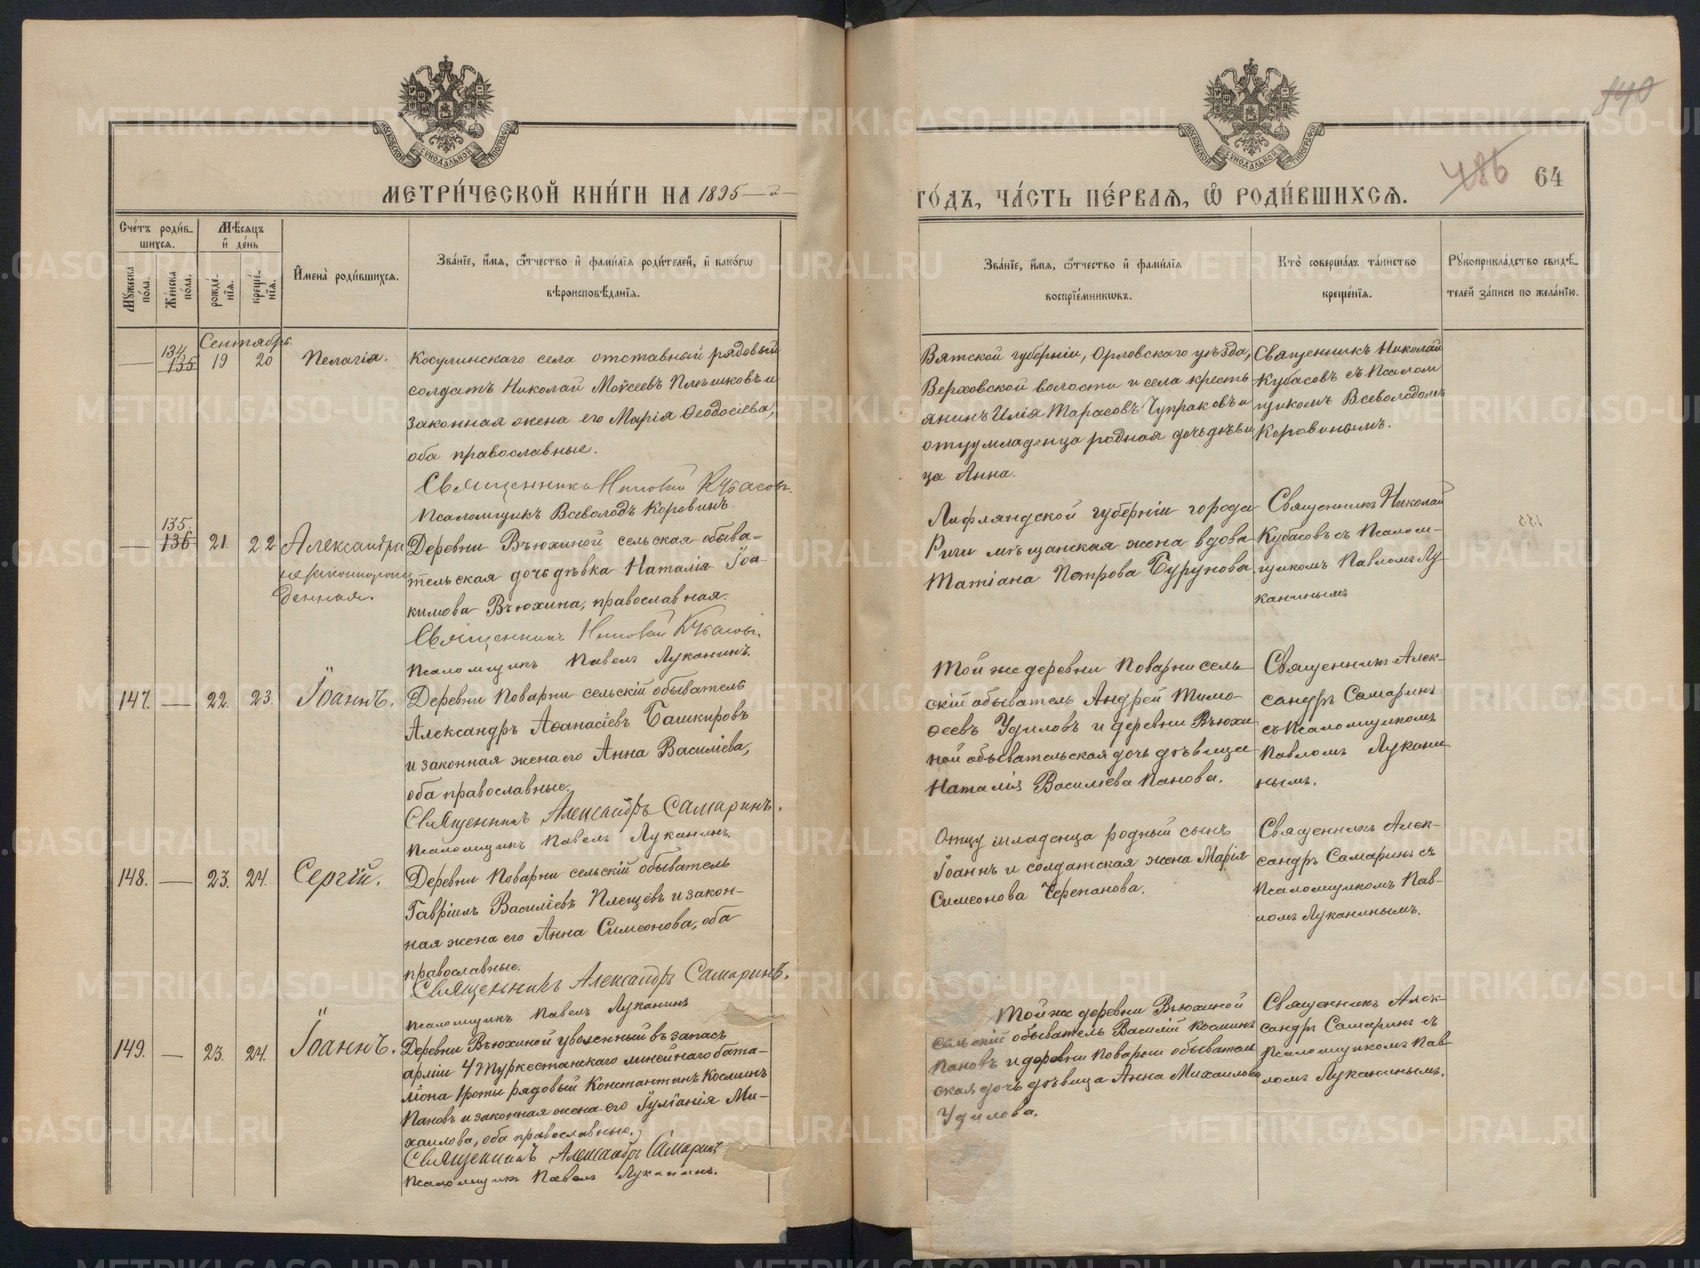 140
486
64
МЕТРИ́ЧЕСКОЙ КНИ́ГИ НА 1895-й
ГО́ДЪ, ЧА́СТЬ ПЕ́РВАЯ, Ѿ РОДИ́ВШИХСЯ.
Сче́тъ роди́в-
шихся.
Мѣ́сяцъ
и де́нь
Му́жеска по́ла.
Же́нска по́ла.
рожде́-нія.
креще́-нія.
Имена̀ роди́вшихся.
Зва́ніе, и́мя, о́тчество и фами́лія роди́телей, и како́гѡ
вѣроисповѣ́данія.
Зва́ніе, и́мя, о́тчество и фами́лія
воспріе́мникѡвъ.
Кто̀ соверша́лъ та́инство
креще́нія.
Рукоприкла́дство свидѣ́-
телей за́писи по жела́нію.
Сентябрь
134
135
19
20
Пелагія.
Косулинскаго села отставный рядовый
солдатъ Николай Моѵсеевъ Плѣшковъ и
законная жена его Марія Ѳеодосіева,
оба православные.
Священникъ Николай Кубасовъ.
Псаломщикъ Всеволодъ Коровинъ.
Вятской губерніи, Орловскаго уѣзда,
Верховской волости и села кресть
янинъ Илія Тарасовъ Чупраковъ и
отцу младенца родная дочь дѣви
ца Анна.
Священникъ Николай
Кубасовъ съ Псалом
щикомъ Всеволодомъ
Коровинымъ.
135.
136
21.
22
Александра
незаконнорож
денная.
Деревни Вьюхиной сельская обыва-
тельская дочь дѣвка Наталія Іоа
кимова Вьюхина, православная.
Священникъ Николай Кубасовъ.
Псаломщикъ Павелъ Луканинъ.
Лифляндской губерніи города
Риги мѣщанская жена вдова
Татіана Петрова Бурунова.
Священникъ Николай
Кубасовъ съ Псалом-
щикомъ Павломъ Лу
канинымъ
147.
22.
23.
Іоаннъ.
Деревни Поварни сельскій обыватель
Александръ Аѳанасіевъ Башкировъ
и законная жена его Анна Василіева,
оба православные.
Священникъ Александръ Самаринъ.
Псаломщикъ Павелъ Луканинъ.
Той же деревни Поварни сель
скій обыватель Андрей Тимо-
ѳеевъ Удиловъ и деревни Вьюхи
ной обывательская дочь дѣвица
Наталія Василіева Панова.
Священникъ Алек-
сандръ Самаринъ
съ Псаломщикомъ
Павломъ Лукани
нымъ.
148.
23.
24.
Сергій.
Деревни Поварни сельскій обыватель
Гавріилъ Василіевъ Плещевъ и закон-
ная жена его Анна Симеонова, оба
православные.
Священникъ Александръ Самаринъ.
Псаломщикъ Павелъ Луканинъ
Отцу младенца родный сынъ
Іоаннъ и солдатская жена Марія
Симеонова Черепанова.
Священникъ Алек-
сандръ Самаринъ съ
Псаломщикомъ Пав-
ломъ Луканинымъ.
149.
23.
24.
Іоаннъ.
Деревни Вьюхиной уволенный въ запасъ
арміи 4 Туркестанскаго линейнаго бата-
ліона 1 роты рядовый Константинъ Косминъ
Пановъ и законная жена его Іуліанія Ми-
хаилова, оба православные.
Священникъ Александръ Самаринъ
Псаломщикъ Павелъ Луканинъ.
Той же деревни Вьюхиной
сельскій обыватель Василій Косминъ
Пановъ и деревни Поварни обыватель
ская дочь дѣвица Анна Михаилова
Удилова.
Священникъ Алек-
сандръ Самаринъ съ
Псаломщикомъ Пав
ломъ Луканинымъ.
METRIKI.GASO-URAL.RU